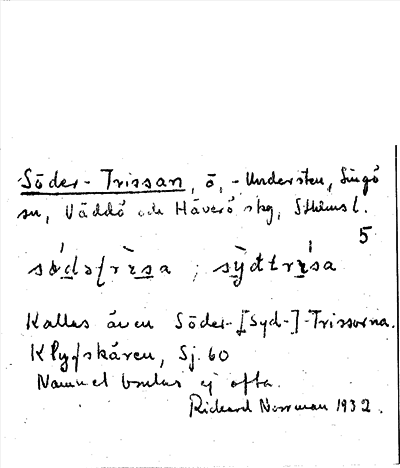 Söder-Trissan, ö, - Understen, Singö
sn, Väddö och Häverö skg, Sthlms l.
5
södǝtrìsa ; sỳdtrìsa
Kallas även Söder-[Syd-]-Trissorna.
Klyfskären, Sj. 60
Namnet brukas ej ofta.
Rickard Norrman 1932.